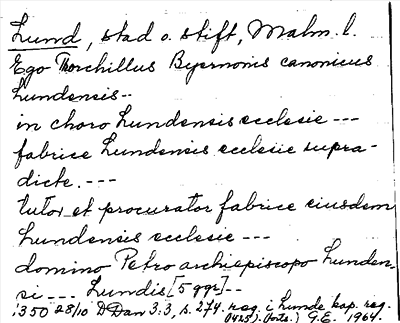 Lund, stad o. stift, Malm. l.
Ego Thorchillus Byernonis canonicus
Lundensis --
in choro Lundensis ecclesie ---
fabrice Lundensis ecclesie supra-
dicte. ---
tutor et procurator fabrice eiusdem
Lundensis ecclesie ---
domino Petro archiepiscopo Lunden-
si --- Lundis [5 ggr] --
1350 28/10 DDan 3:3, s. 274. reg. i Lunde kap. reg.
(1425). (orts.) G.E. 1964.